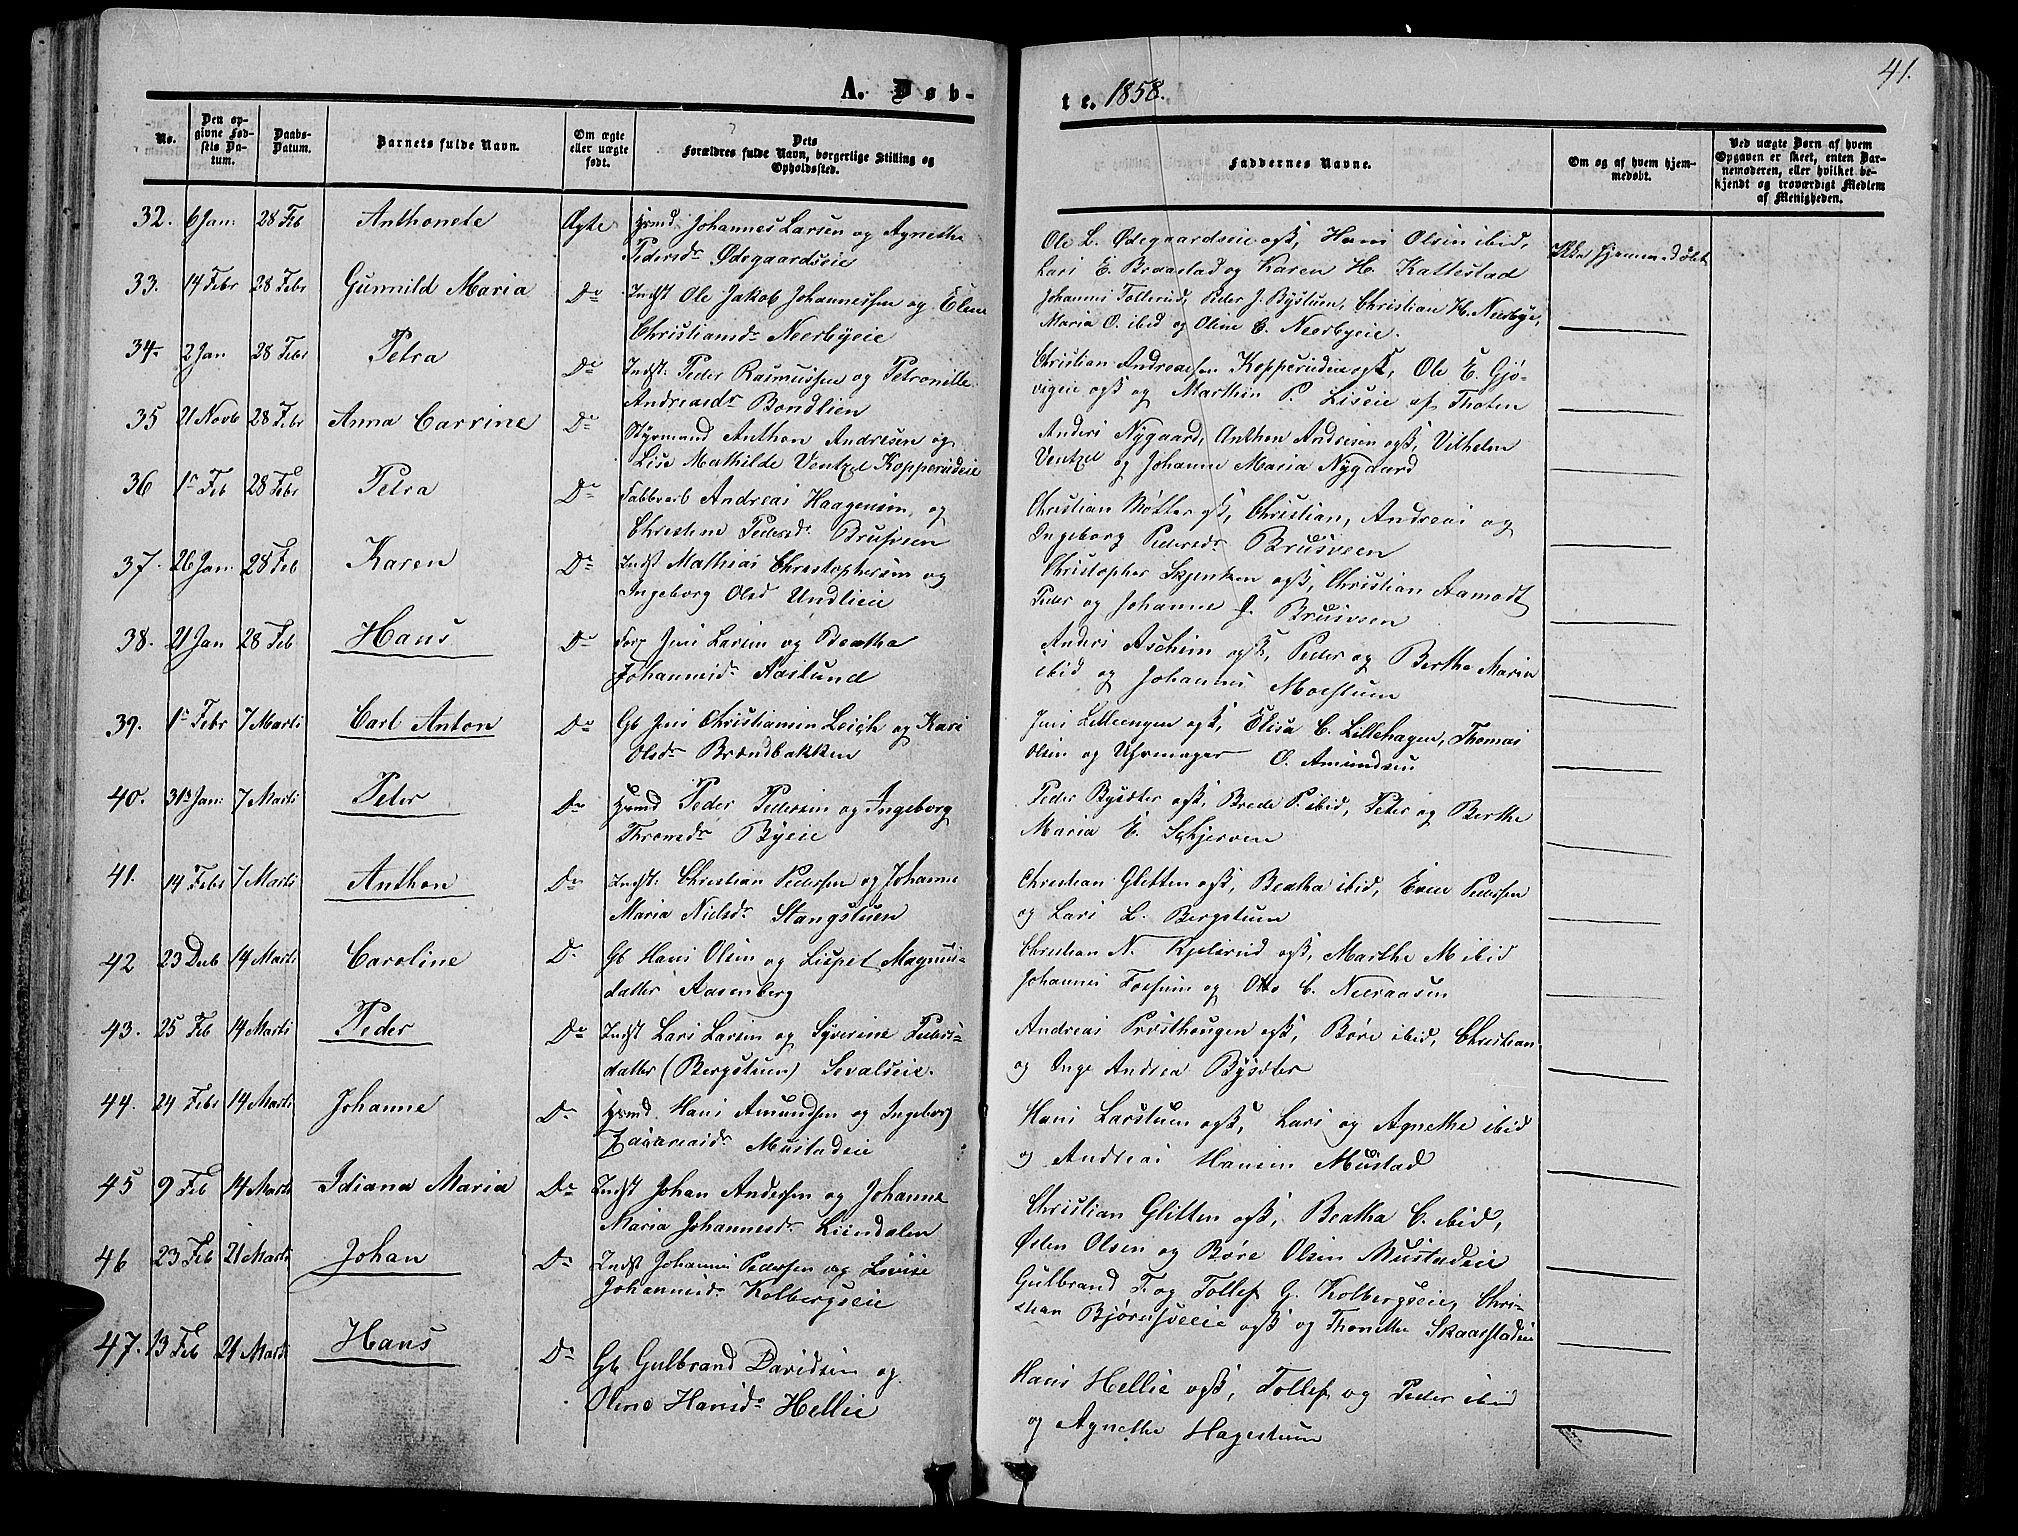 A. Døb-
te. 1858.
41.
No.
Den op-
givne Fød-
sels Da-
tum.
Daabs-
Datum.
Barnets fulde Navn.
Om ægte
eller uægte
født.
Dets
Forældres fulde Navn, borgerlige Stilling og
Opholdssted.
Faddernes Navne.
Om og af hvem hjem-
medøbt.
Ved uægte Børn af hvem
Opgaven er skeet, enten Bar-
nemoderen, eller hvilket be-
kjendt og troværdigt Medlem
af Menigheden.
32. 6 Jan. 28 Feb Anthonete Ægte Hrmd. Johannes Larsen og Agnethe
Pedersdr Ødegaardseie
Ole L. Ødegaardseie ogsk, Hans Olsen ibid,
Lars E. Braastad og Karen H. Kattestad
Ikke hjemmedøbt
33. 14 Febr 28 Febr Gunnild Maria Do Indst Ole Jakob Johannessen og Elene
Christiansdr Neerbyeie
Johannes Tollerud, Peder J. Bystuen, Christian H. Neerbye,
Maria O. ibid og Oline C. Neerbyeie.
34. 2 Jan 28 Febr Petra Do Indst. Peder Rasmussen og Petronille
Andreasdr Bondlien
Christian Andreassen Kopperudeie ogsk, Ole E. Gjø-
vigeie ogsk og Marthin P. Liseie af Thoten
35 21 Novb 28 Febr Anna Carrine Do Styrmand Anthon Andresen og
Lise Mathilde Ventzel Kopperudeie
Anders Nygaard, Anthon Andresen ogsk, Vilhelm
Ventzel og Johanne Maria Nygaard
36 1e Feb 28 Febr Petra Do Fabbrarb Andreas Haagensen og
Christine Pedersdr Brusveen
Christian Nøtter ogsk, Christian, Andreas og
Ingeborg Pedersdr Brusveen
37. 26 Jan. 28 Feb Karen Do Indst Mathias Christophersen og
Ingeborg Olsd Undlieie
Christopher Skjenken ogsk, Christian Aamodt
Peder og Johanne J. Brusveen
38. 21 Jan 28 Feb Hans Do Forp Jens Larsen og Beatha
Johannesdr Aaslund
Anders Aschim ogsk, Peder og Berthe Maria
ibid og Johannes Moestuen
39. 1e Febr 7 Marti Carl Anton Do Gb Jens Christiansen Leigh og Kari
Olsdr Brændbakken
Jens Lilleengen ogsk, Elisa C. Lillehagen, Thomas
Olsen og Uhrmager O. Amundsen
40. 31s Jan. 7 Marti Peter Do Hrmd Peder Pedersen og Ingeborg
Thronsdr Byeie
Peder Bysæter ogsk, Brede P. ibid, Peter og Berthe
Maria E. Schjerven
41. 14 Febr 7 Marti Anthon Do Indst. Christian Pedersen og Johanne
Maria Nielsdr Stangstuen
Christian Glitten ogsk, Beatha ibid, Even Pedersen
og Lars L. Bergstuen
42 23 Deb 14 Marti Caroline Do Gb Hans Olsen og Lispet Magnus-
datter Aasenberg
Christian N. Kjelsrud ogsk, Marthe M ibid
Johannes Fossum og Otto C. Neeraasen
43. 25 Feb 14 Marti Peder Do Indst Lars Larsen og Syverine Peders-
datter (Bergstuen) Sevalseie.
Andreas Prøsthougen ogsk, Børe ibid, Christian
og Inge Andrea Bysæter
44. 24 Febr 14 Marti Johanne Do Hrmd. Hans Amundsen og Ingeborg
Zacariasdr Mustadeie
Hans Larstuen ogsk, Lars og Agnethe ibid
og Andreas Hansen Mustad
45 9 Feb 14 Marti Idiana Maria Do Indst Johan Andersen og Johanne
Maria Johannesdr Liendalen
Christian Glitten ogsk, Beatha C. ibid,
Østen Olsen og Børe Olsen Mustadeie
46 23 Feb 21 Marti Johan Do Indst Johannes Pedersen og Lovise
Johannesdr Kolbergseie
Gulbrand T. og Tollef G. Kolbergseie, Chri-
stian Bjørnsveeie ogsk og Thonethe Skaarstadeie
47. 13 Feb 21 Marti Hans Do Gb Gulbrand Davidsen og
Oline Hansdr Hellie
Hans Hellie ogsk, Tollef og Peder ibid
og Agnethe Hagestuen